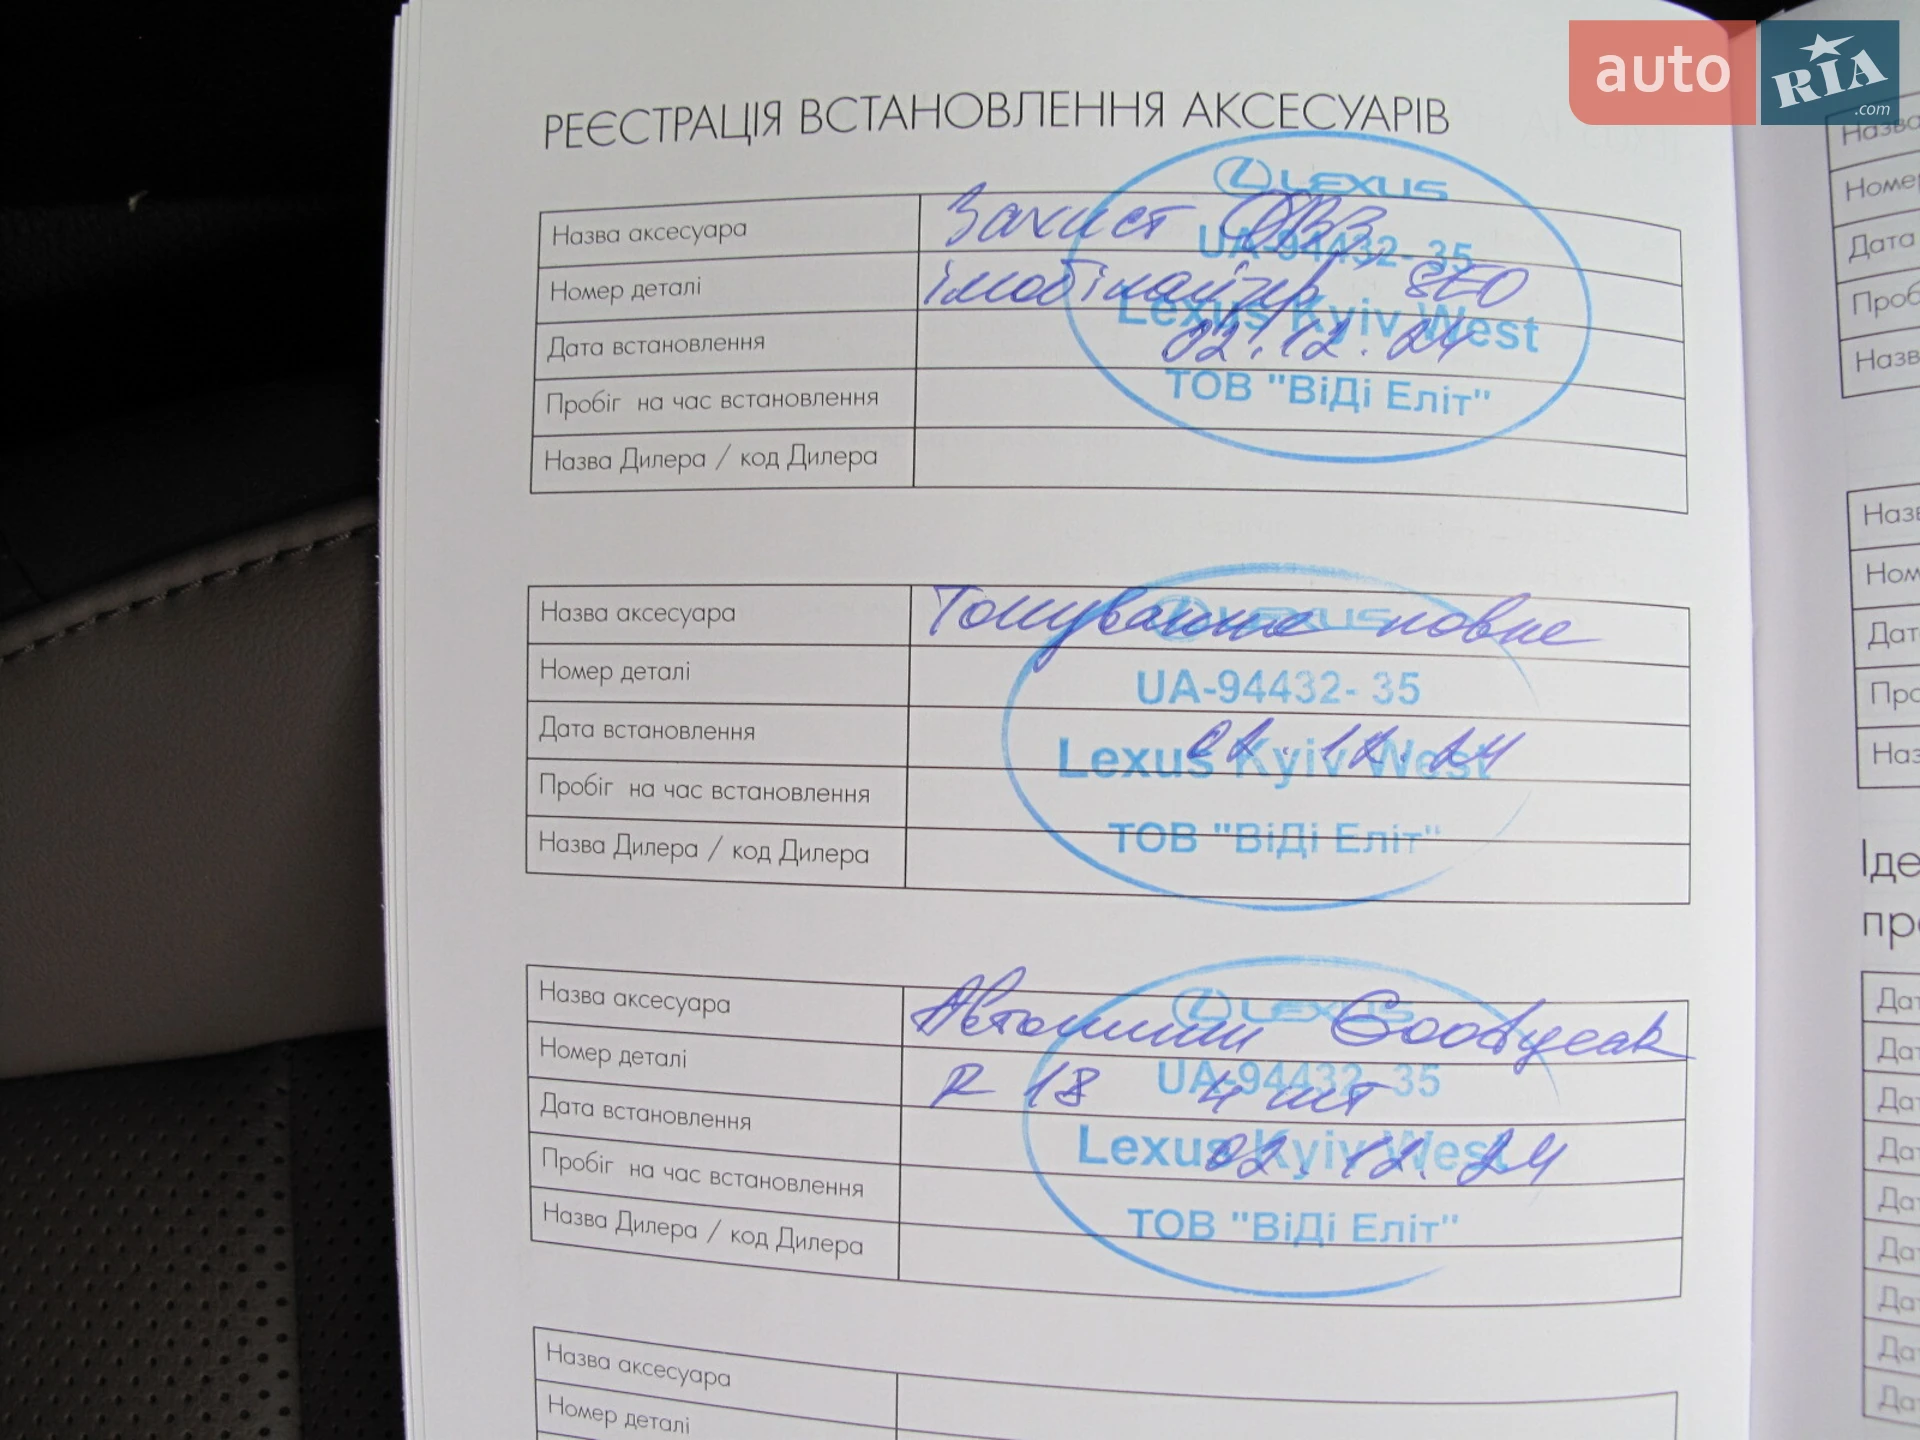 auto RIA .com
РЕЄСТРАЦІЯ ВСТАНОВЛЕННЯ АКСЕСУАРІВ
LEXUS
Назва аксесуара Захист ДВЗ,
UA-94432- 35
Номер деталі імобілайзер
Lexus Kyiv West
Дата встановлення 02.12.24
ТОВ "ВіДі Еліт"
Пробіг на час встановлення
Назва Дилера / код Дилера
LEXUS
Назва аксесуара Тонування повне
Номер деталі
UA-94432- 35
Дата встановлення 02.12.24
Lexus Kyiv West
Пробіг на час встановлення
ТОВ "ВіДі Еліт"
Назва Дилера / код Дилера
LEXUS
Назва аксесуара Автошини Goodyear
Номер деталі R 18 4 шт
UA-94432- 35
Дата встановлення 02.12.24
Lexus Kyiv West
Пробіг на час встановлення
ТОВ "ВіДі Еліт"
Назва Дилера / код Дилера
Назва аксесуара
Номер деталі
Назва
Номер
Дата
Проб
Назв
Назв
Ном
Дат
Про
Наз
Іде
про
Дат
Дат
Дат
Дат
Дат
Дат
Дат
Дат
Дат